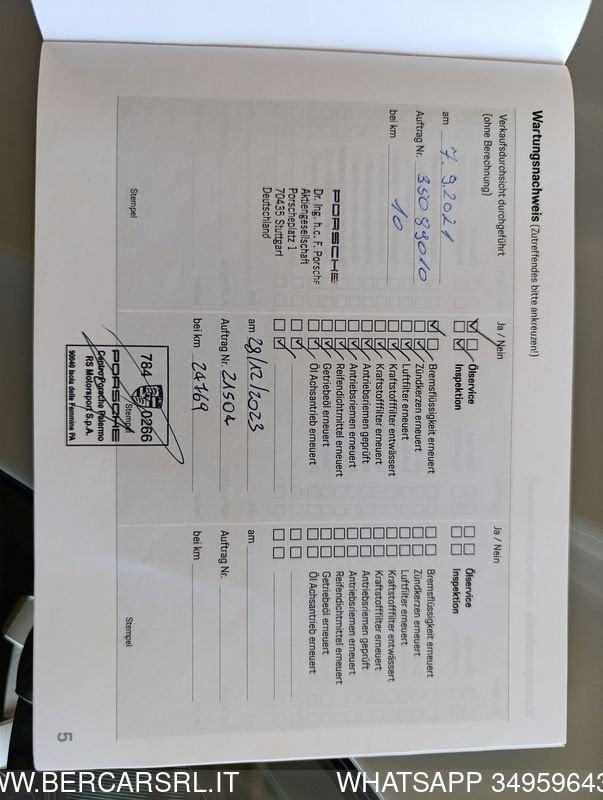 Wartungsnachweis (Zutreffendes bitte ankreuzen!)
Verkaufsdurchsicht durchgeführt
(ohne Berechnung)
am 7.9.2021
Auftrag Nr. 35089010
bei km 10
PORSCHE
Dr. Ing. h.c. F. Porsche
Aktiengesellschaft
Porscheplatz 1
70435 Stuttgart
Deutschland
Stempel
Ja / Nein
Ölservice
Inspektion
Bremsflüssigkeit erneuert
Zündkerzen erneuert
Luftfilter erneuert
Kraftstofffilter entwässert
Kraftstofffilter erneuert
Antriebsriemen geprüft
Antriebsriemen erneuert
Reifendichtmittel erneuert
Getriebeöl erneuert
Öl Achsantrieb erneuert
am 28/12/2023
Auftrag Nr. 21504
bei km 24769
784 0266
Stempel
PORSCHE
Centro Porsche Palermo
RS Motorsport S.p.A.
90040 Isola delle Femmine PA
Ja / Nein
Ölservice
Inspektion
Bremsflüssigkeit erneuert
Zündkerzen erneuert
Luftfilter erneuert
Kraftstofffilter entwässert
Kraftstofffilter erneuert
Antriebsriemen geprüft
Antriebsriemen erneuert
Reifendichtmittel erneuert
Getriebeöl erneuert
Öl Achsantrieb erneuert
am
Auftrag Nr.
bei km
Stempel
5
WW.BERCARSRL.IT WHATSAPP 34959643